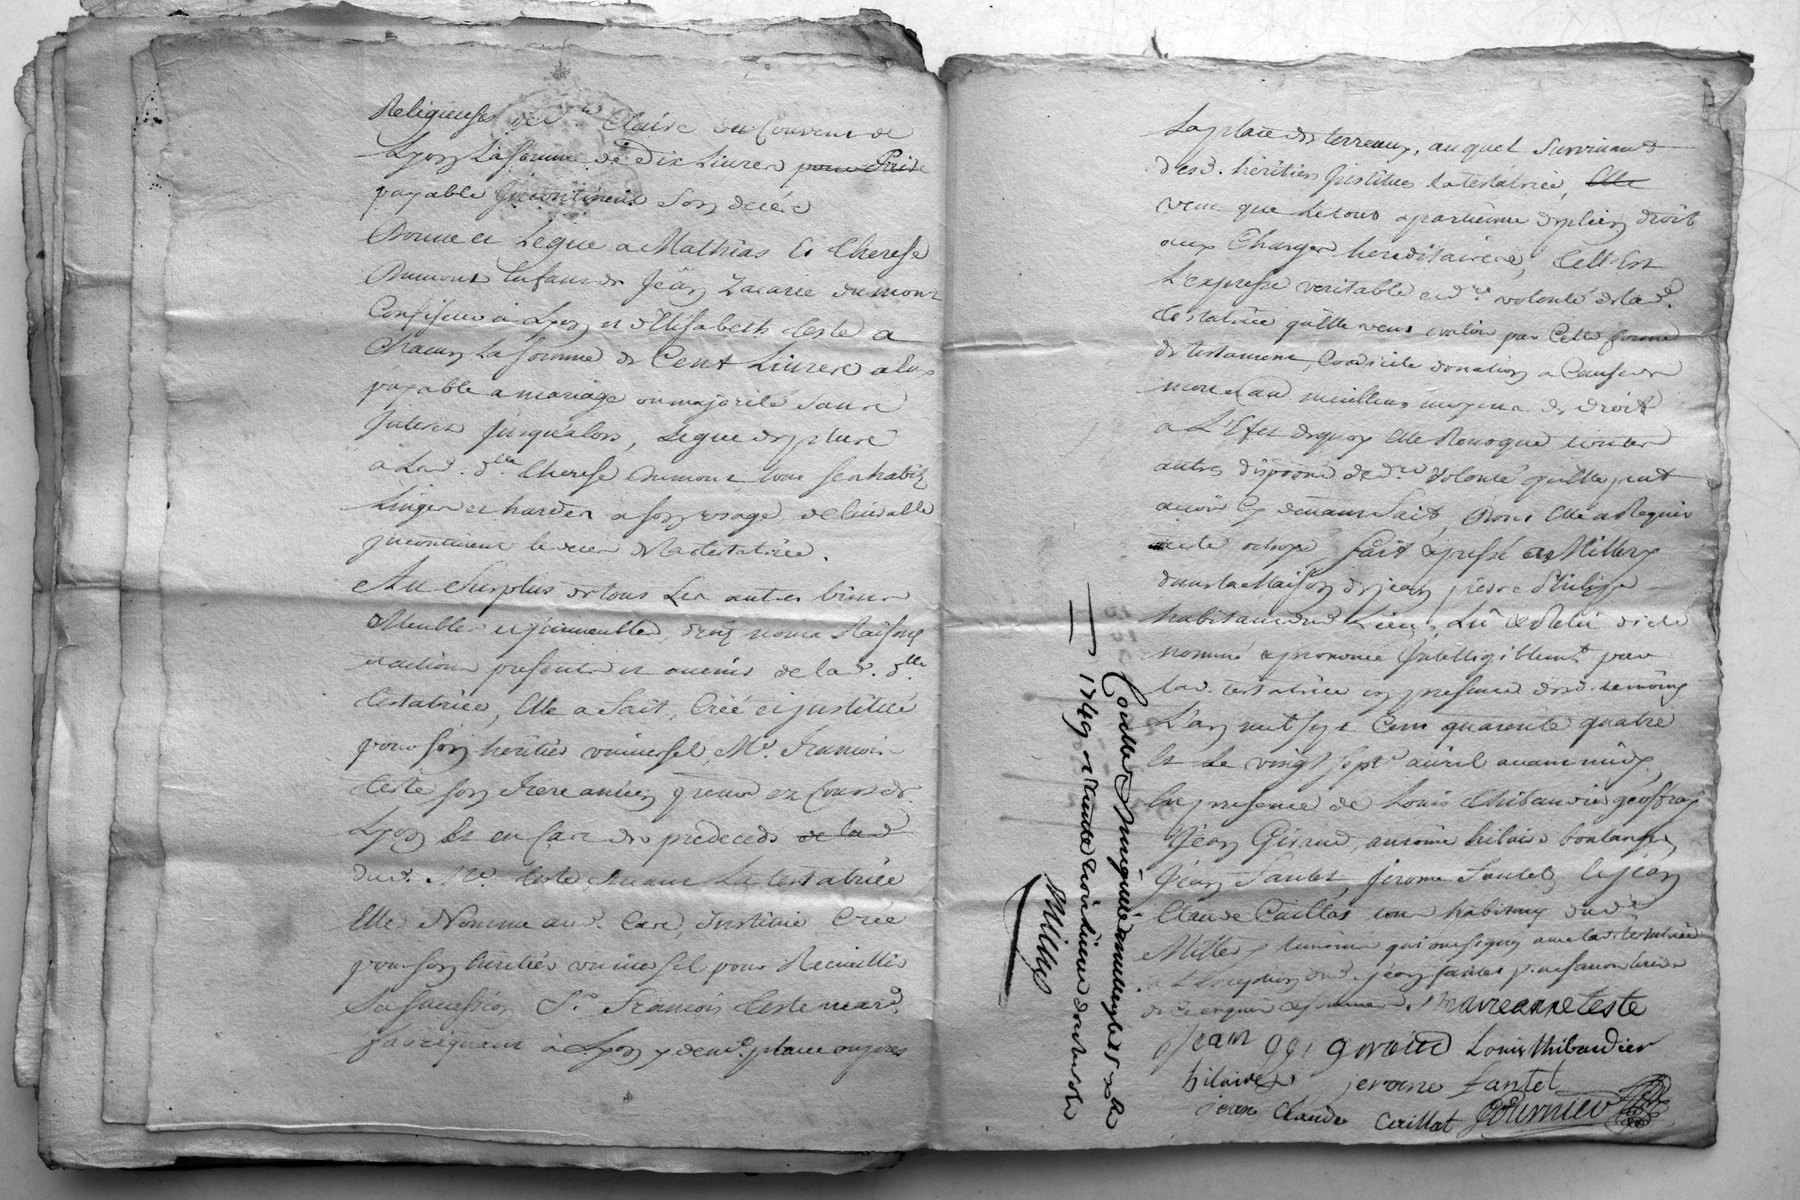 Religieuses de Ste Claire du Couvent de
Lyon la somme de Dix Livres pour Prier
payable Incontinent son decéd
Donne et Legue a Mathias Et Therese
Dumont Enfans de Jean Zacarie dumont
Confiseur a Lyon et d'Elisabeth Teste a
Chacun La somme de Cent Livres
payable a mariage ou majorité sans
Interest Jusqualors, Legue de plus
a Lad. dlle Therese Dumont tous ses habits
Linges et hardes a son usage delivrable
jncontinent le deces de la testatrice.
Au Surplus de tous Les autres biens
Meubles et jmmeubles, droits noms Raisons
et actions presents et avenir de lad. dlle
testatrice, Elle a fait, Créé et justitué
pour son heritier universel, Mr. François
Teste son frere ancien
Lyon Et en Cas de predeceds de lad
dud. Mr. Teste avant La testatrice
Elle Nomme aud. Cas, Institue Crée
pour son heritier universel pour Recueillir
Sa succession Sr. François Teste mard
fabriquant à Lyon y demt. place
La place des terreaux, auquel Survivant
desd. héritiers Jnstitués la testatrice, Elle
veut que le tout apartienne de plein droit
aux Charges hereditaires, Cest Est
L'expresse veritable et dre volonté de lad.
testatrice qu'elle veut valoir par Cette forme
de testament, Codicile donation a Cause de
mort et au meilleur moyens de droit
a L'Efet de quoy Elle Revoque toutes
autres disposons de dre volonté qu'elle peut
avoir Cy devant fait, Dont Elle a Requis
acte octroyé, fait a Millery
dans la Maison de jean pierre Philipe
habitant dud. Lieu, Lû et Relû dicté
nommé et prononcé Intelligiblemt par
lad. testatrice en presence desd. temoins
L'an mil sept Cens quarente quatre
Et Le vingt sept avril avant midy,
En presence de Louis Thibaudier geoffray
Jean Giraud, antoine hilaire boulanger,
Jean Santel, Jerome Santel, et jean
Claude Caillat tous habitans dud.
Millery temoins qui ont signé avec la testatrice
a L'exception dud. jean Santel pour ne savoir Ecrire
de ce enquis et sommé. Marie anne teste
Jean ggi giraud Louis thibaudier
hilaire jerome Santel
jean Claude Caillat Fournier
Controllé
1749